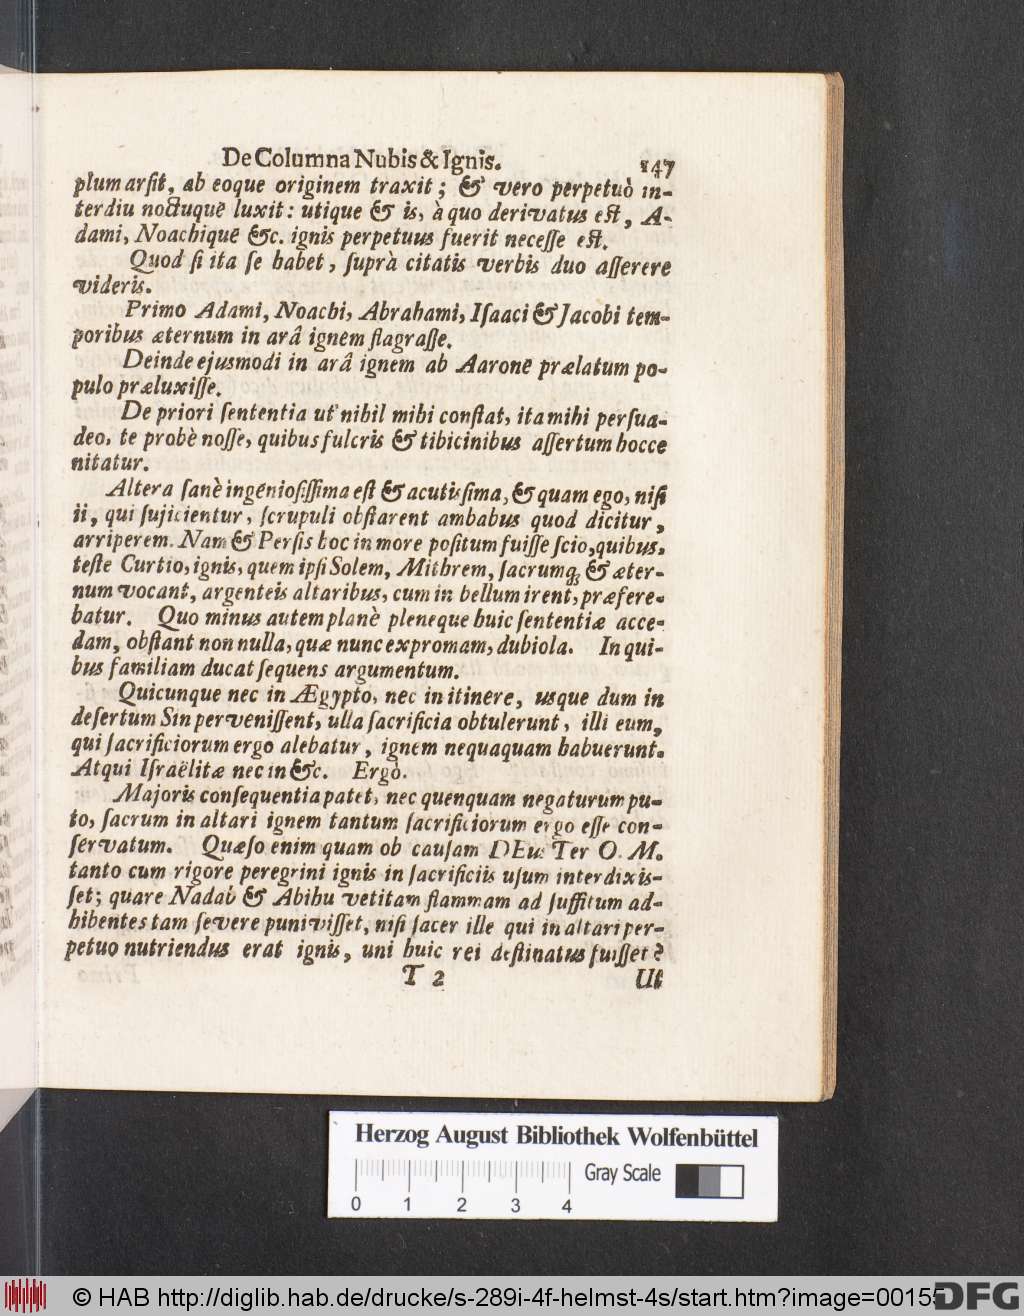 De Columna Nubis & Ignis. 147
plum arſit, ab eoque originem traxit; & vero perpetuò in-
terdiu noctuquē luxit: utique & is, à quo derivatus eſt, A-
dami, Noachiquē &c. ignis perpetuus fuerit neceſſe eſt.
Quod ſi ita ſe habet, ſuprà citatis verbis duo aſſerere
videris.
Primo Adami, Noachi, Abrahami, Iſaaci & Jacobi tem-
poribus æternum in arâ ignem flagraſſe.
Deinde ejusmodi in arâ ignem ab Aaronē prælatum po-
pulo præluxiſſe.
De priori ſententia ut nihil mihi conſtat, ita mihi perſua-
deo, te probè noſſe, quibus fulcris & tibicinibus aſſertum hocce
nitatur.
Altera ſanè ingenioſiſſima eſt & acutisſima, & quam ego, niſi
ii, qui ſujicientur, ſcrupuli obſtarent ambabus quod dicitur,
arriperem. Nam & Perſis hoc in more poſitum fuiſſe ſcio, quibus,
teſte Curtio, ignis, quem ipſi Solem, Mithrem, ſacrumq; & æter-
num vocant, argenteis altaribus, cum in bellum irent, præfere-
batur. Quo minus autem planè pleneque huic ſententiæ acce-
dam, obſtant non nulla, quæ nunc expromam, dubiola. In qui-
bus familiam ducat ſequens argumentum.
Quicunque nec in Ægypto, nec in itinere, usque dum in
deſertum Sin perveniſſent, ulla ſacrificia obtulerunt, illi eum,
qui ſacrificiorum ergo alebatur, ignem nequaquam habuerunt.
Atqui Iſraëlitæ nec in &c. Ergò.
Majoris conſequentia patet, nec quenquam negaturum pu-
to, ſacrum in altari ignem tantum ſacrificiorum ergo eſſe con-
ſervatum. Quæſo enim quam ob cauſam DEus Ter O. M.
tanto cum rigore peregrini ignis in ſacrificiis uſum interdixis-
ſet; quare Nadab & Abihu vetitam flammam ad ſuffitum ad-
hibentes tam ſevere puniviſſet, niſi ſacer ille qui in altari per-
petuo nutriendus erat ignis, uni huic rei deſtinatus fuiſſet?
T 2 Ut
Herzog August Bibliothek Wolfenbüttel
Gray Scale
0 1 2 3 4
© HAB http://diglib.hab.de/drucke/s-289i-4f-helmst-4s/start.htm?image=00155
DFG